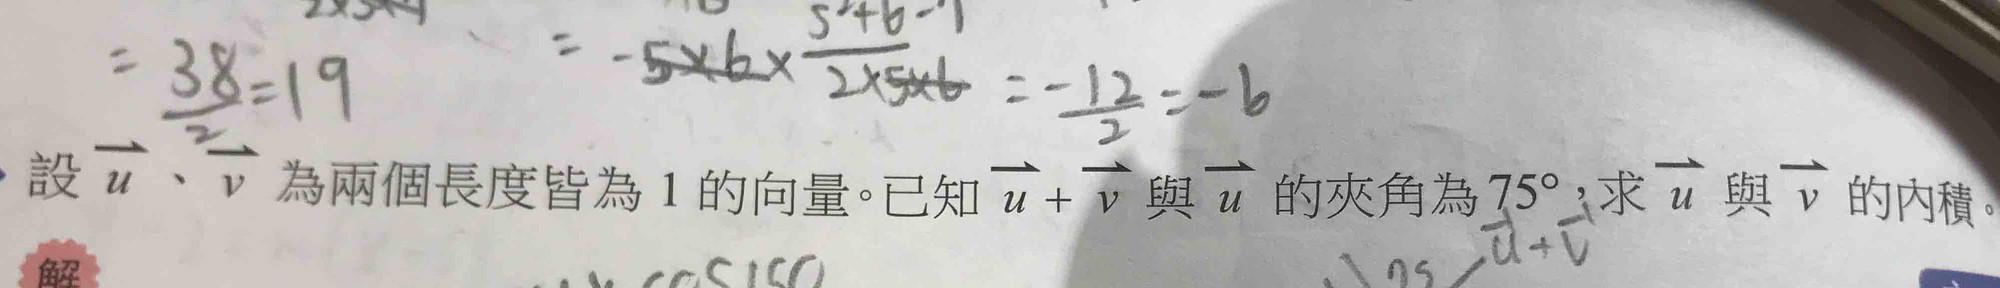 = 38/2 = 19
= -5×6× /2×5×6 = -12/2 = -6
設 u⃗、v⃗ 為兩個長度皆為 1 的向量。已知 u⃗ + v⃗ 與 u⃗ 的夾角為 75°,求 u⃗ 與 v⃗ 的內積。
u⃗+v⃗
解